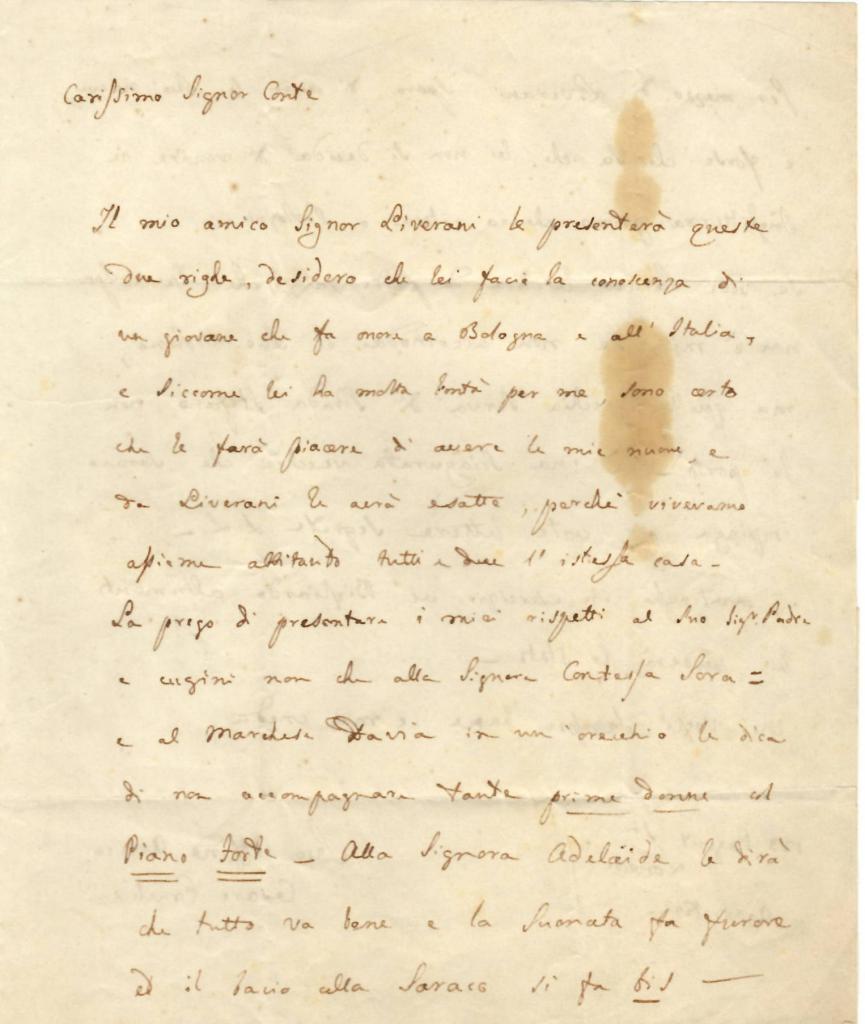 Carissimo Signor Conte
Il mio amico Signor Liverani le presenterà queste
due righe, desidero che lei facia la conoscenza di
un giovane che fa onore a Bologna e all' Italia,
e siccome lei ha molta bontà per me, sono certo
che le farà piacere di avere le mie nuove, e
da Liverani le avrà esatte, perchè viveramo
assieme abbitando tutti e due l' istessa casa -
La prego di presentare i miei rispetti al suo Sigr. Padre
e cugini non che alla Signora Contessa Sora =
e al Marchese Davia in un' orecchio le dica
di non accompagnare tante prime donne col
Piano Forte - Alla Signora Adelaide le dirà
che tutto va bene e la suonata fa furore
ed il bacio alla si fa bis -